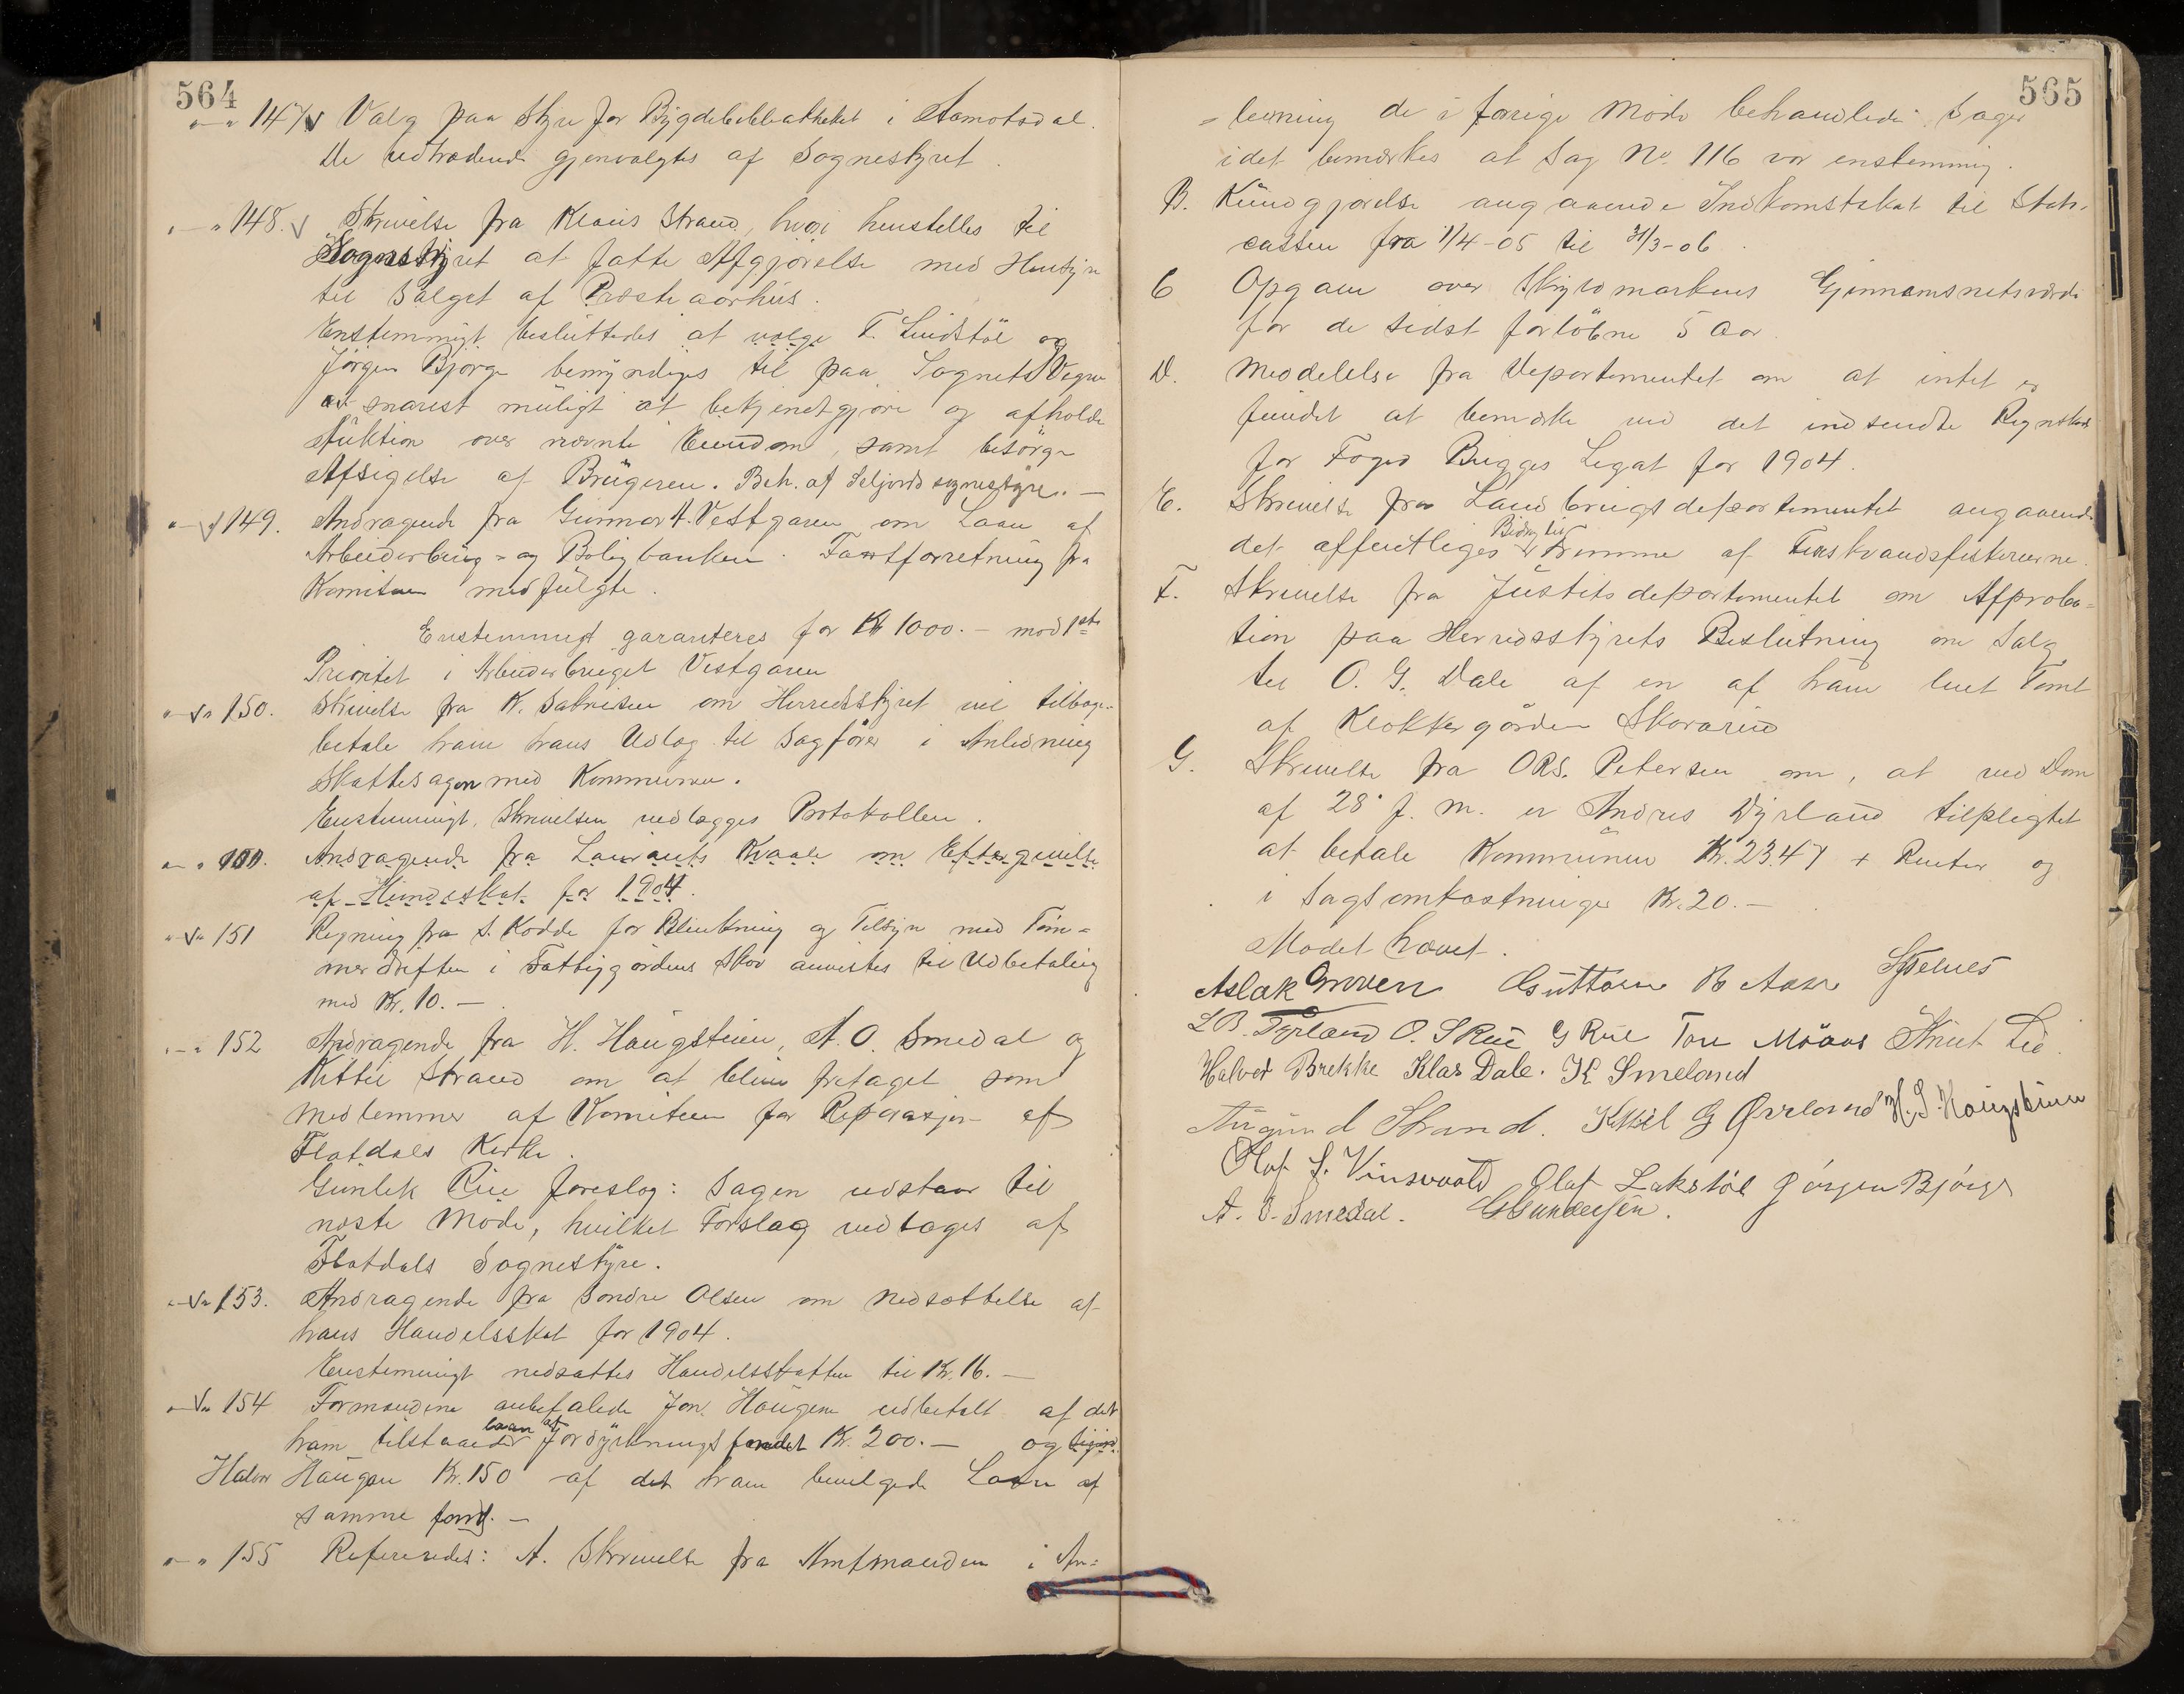 564
" — " 147 √ Valg paa Styre for Bygdebibliotheket i Aamotsdal.
De udtrædende gjenvalgtes af Sognestyret.
" — " 148. √ Skrivelse fra Klaus Strand, hvori henstilles til
Sognestyret at fatte Afgjørelse med Hensyn
til Salget af Præsteaarhus.
Enstemmigt besluttedes at vælge T. Lindstöl og
Jörgen Björge bemyndiges til paa Sognets Vegne
snarest muligt at bekjendtgjøre og afholde
Auktion over nævnte Eiendom, samt besörge
Afsigelse af Brugeren. Beh. af Seljords sognestyre. —
" √ " 149. Andragende fra Gunnar H. Vestgaren om Laan af
Arbeiderbrug- og Boligbanken. Taxtforretning fra
Komiteen medfulgte.
Enstemmigt garanteres for Kr 1000. — mod 1ste
Prioritet i Arbeiderbruget Vestgaren
" √ " 150. Skrivelse fra K. om Herredsstyret vil tilbage-
betale ham hans Udlæg til Sagfører i Anledning
Skattesagen med Kommunen.
Enstemmigt, Skrivelsen vedlægges Protokollen.
" — " Andragende fra Laurants Kvaale om Eftergivelse
af Hundeskat for 1904.
" √ " 151 Regning fra S. Kodde for Blinkning og Tilsyn med Töm-
merdriften i Fattiggårdens Skov anvistes til Udbetaling
med Kr. 10. —
" — " 152 Andragende fra H. Haugstein, A. O. Smedal og
Kittil Strand om at blive fritaget som
Medlemmer af Komiteen for Reparasjon af
Flatdals Kirke.
Gunlek Rue foreslog: Sagen udstaar til
næste Møde, hvilket Forslag vedtages af
Flatdals Sognestyre.
" √ " 153. Andragende fra Sondre Olsen om Nedsættelse af
hans Handelsskat for 1904.
Enstemmigt nedsattes Handelsskatten til Kr. 16. —
" √ " 154 Formændene anbefalede Jon Haugene udbetalt af det
ham tilstaaede laan af Jordyrkningsfondet Kr. 200. — og
Halvor Haugen Kr. 150 af det ham bevilgede Laan af
samme fond. —
" — " 155 Refereredes: A. Skrivelse fra Amtmanden i An-
565
= ledning de i forrige Møde behandlede Sager
idet bemærkes at Sag No. 116 var enstemmig.
B. Kundgjørelse angaaende Indkomstskat til Stats-
cassen fra 1/4-05 til 31/3-06.
C Opgave over Skyldmarkens Gjennemsnitsværdi
for de sidst forløbne 5 Aar
D. Meddelelse fra Departementet om at intet er
fundet at bemærke ved det indsendte Regnskab
for Foged Bugges Legat for 1904.
E. Skrivelse fra Landbrugsdepartementet angaaende
det offentliges Bidrag til Fremme af Ferskvandsfiskerierne.
F. Skrivelse fra Justitsdepartementet om Approba-
tion paa Herredsstyrets Beslutning om Salg
til O. G. Dale af en af ham leiet Tomt
af Klokkergården Skovarud
G. Skrivelse fra ORS. Petersen om, at ved Dom
af 28' f. m. er Andres Dyrland tilpligtet
at betale Kommunen Kr. 23.47 + Renter og
i Sagsomkostninger Kr. 20. —
Mødet hævet.
Aslak Groven Guttorm R Aase
L B. Tyrland O. S Rue G Rue Tore Möaas Knut Lid
Halvor Brekke Klas Dale. K Smeland
Augund Strand. Kjetil G Överland H. S. Haugstein
Olaf S. Vinsvaald Olaf Lakstöl Jörgen Björge
A. O. Smedal. G Gundersen.